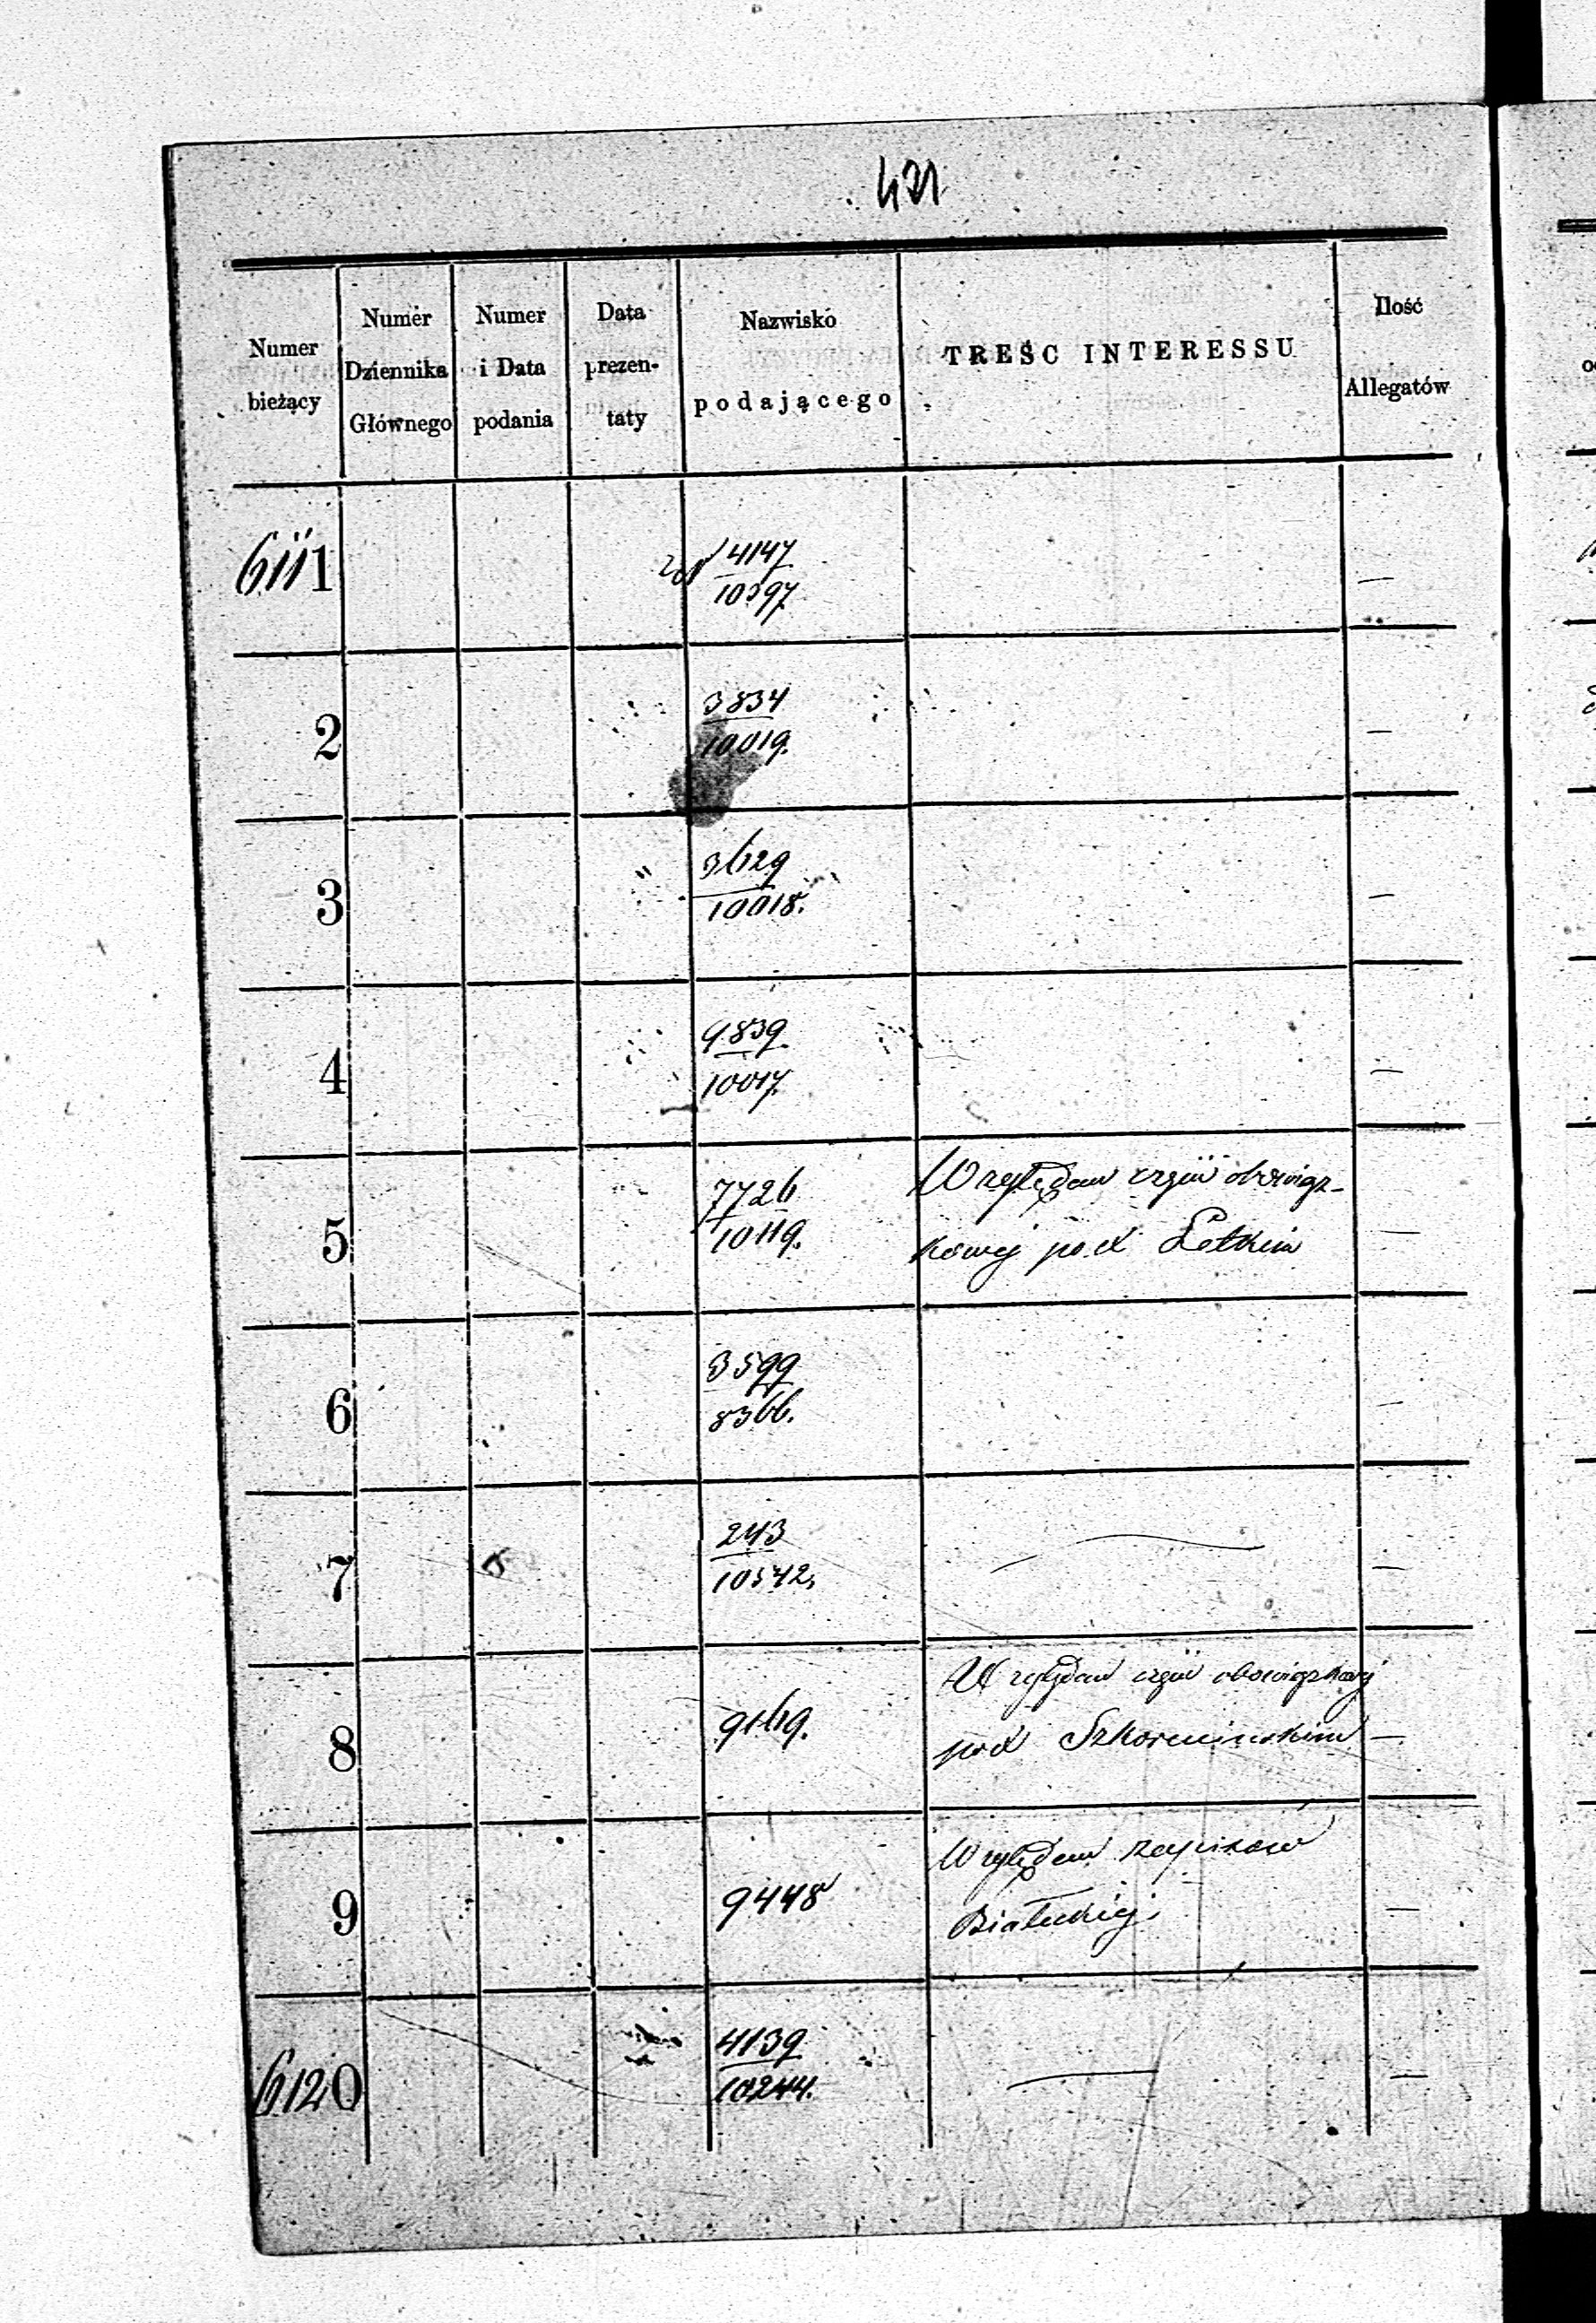 421
Numer bieżący
Numer Dziennika Głównego
Numer i Data podania
Data prezen- taty
Nazwisko podającego
TREŚĆ INTERESSU
Ilość Allegatów
6111
4147
10397
—
2
3834
10019.
—
3
3629
10018.
—
4
9839.
10017.
—
5
7726
10119.
Względem części obowiąz-
kowej pod Letkim
—
6
3599
8366.
—
7
243
10542,
—
8
9169.
Względem części obowiązkowej
pod
—
9
9448
Względem zapisów
Białeckiej.
—
6120
4139
10244.
—